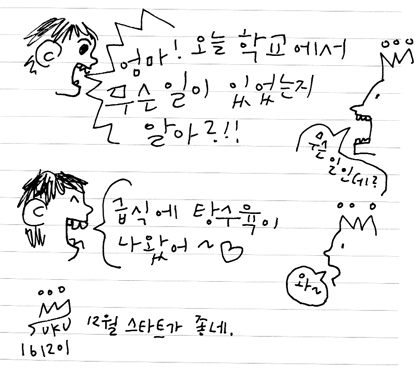 엄마! 오늘 학교에서
무슨 일이 있었는지
알아?!!
무슨
일인데?
급식에 탕수육이
나왔어~♡
와~
SUKU 12월 스타트가 좋네.
161201